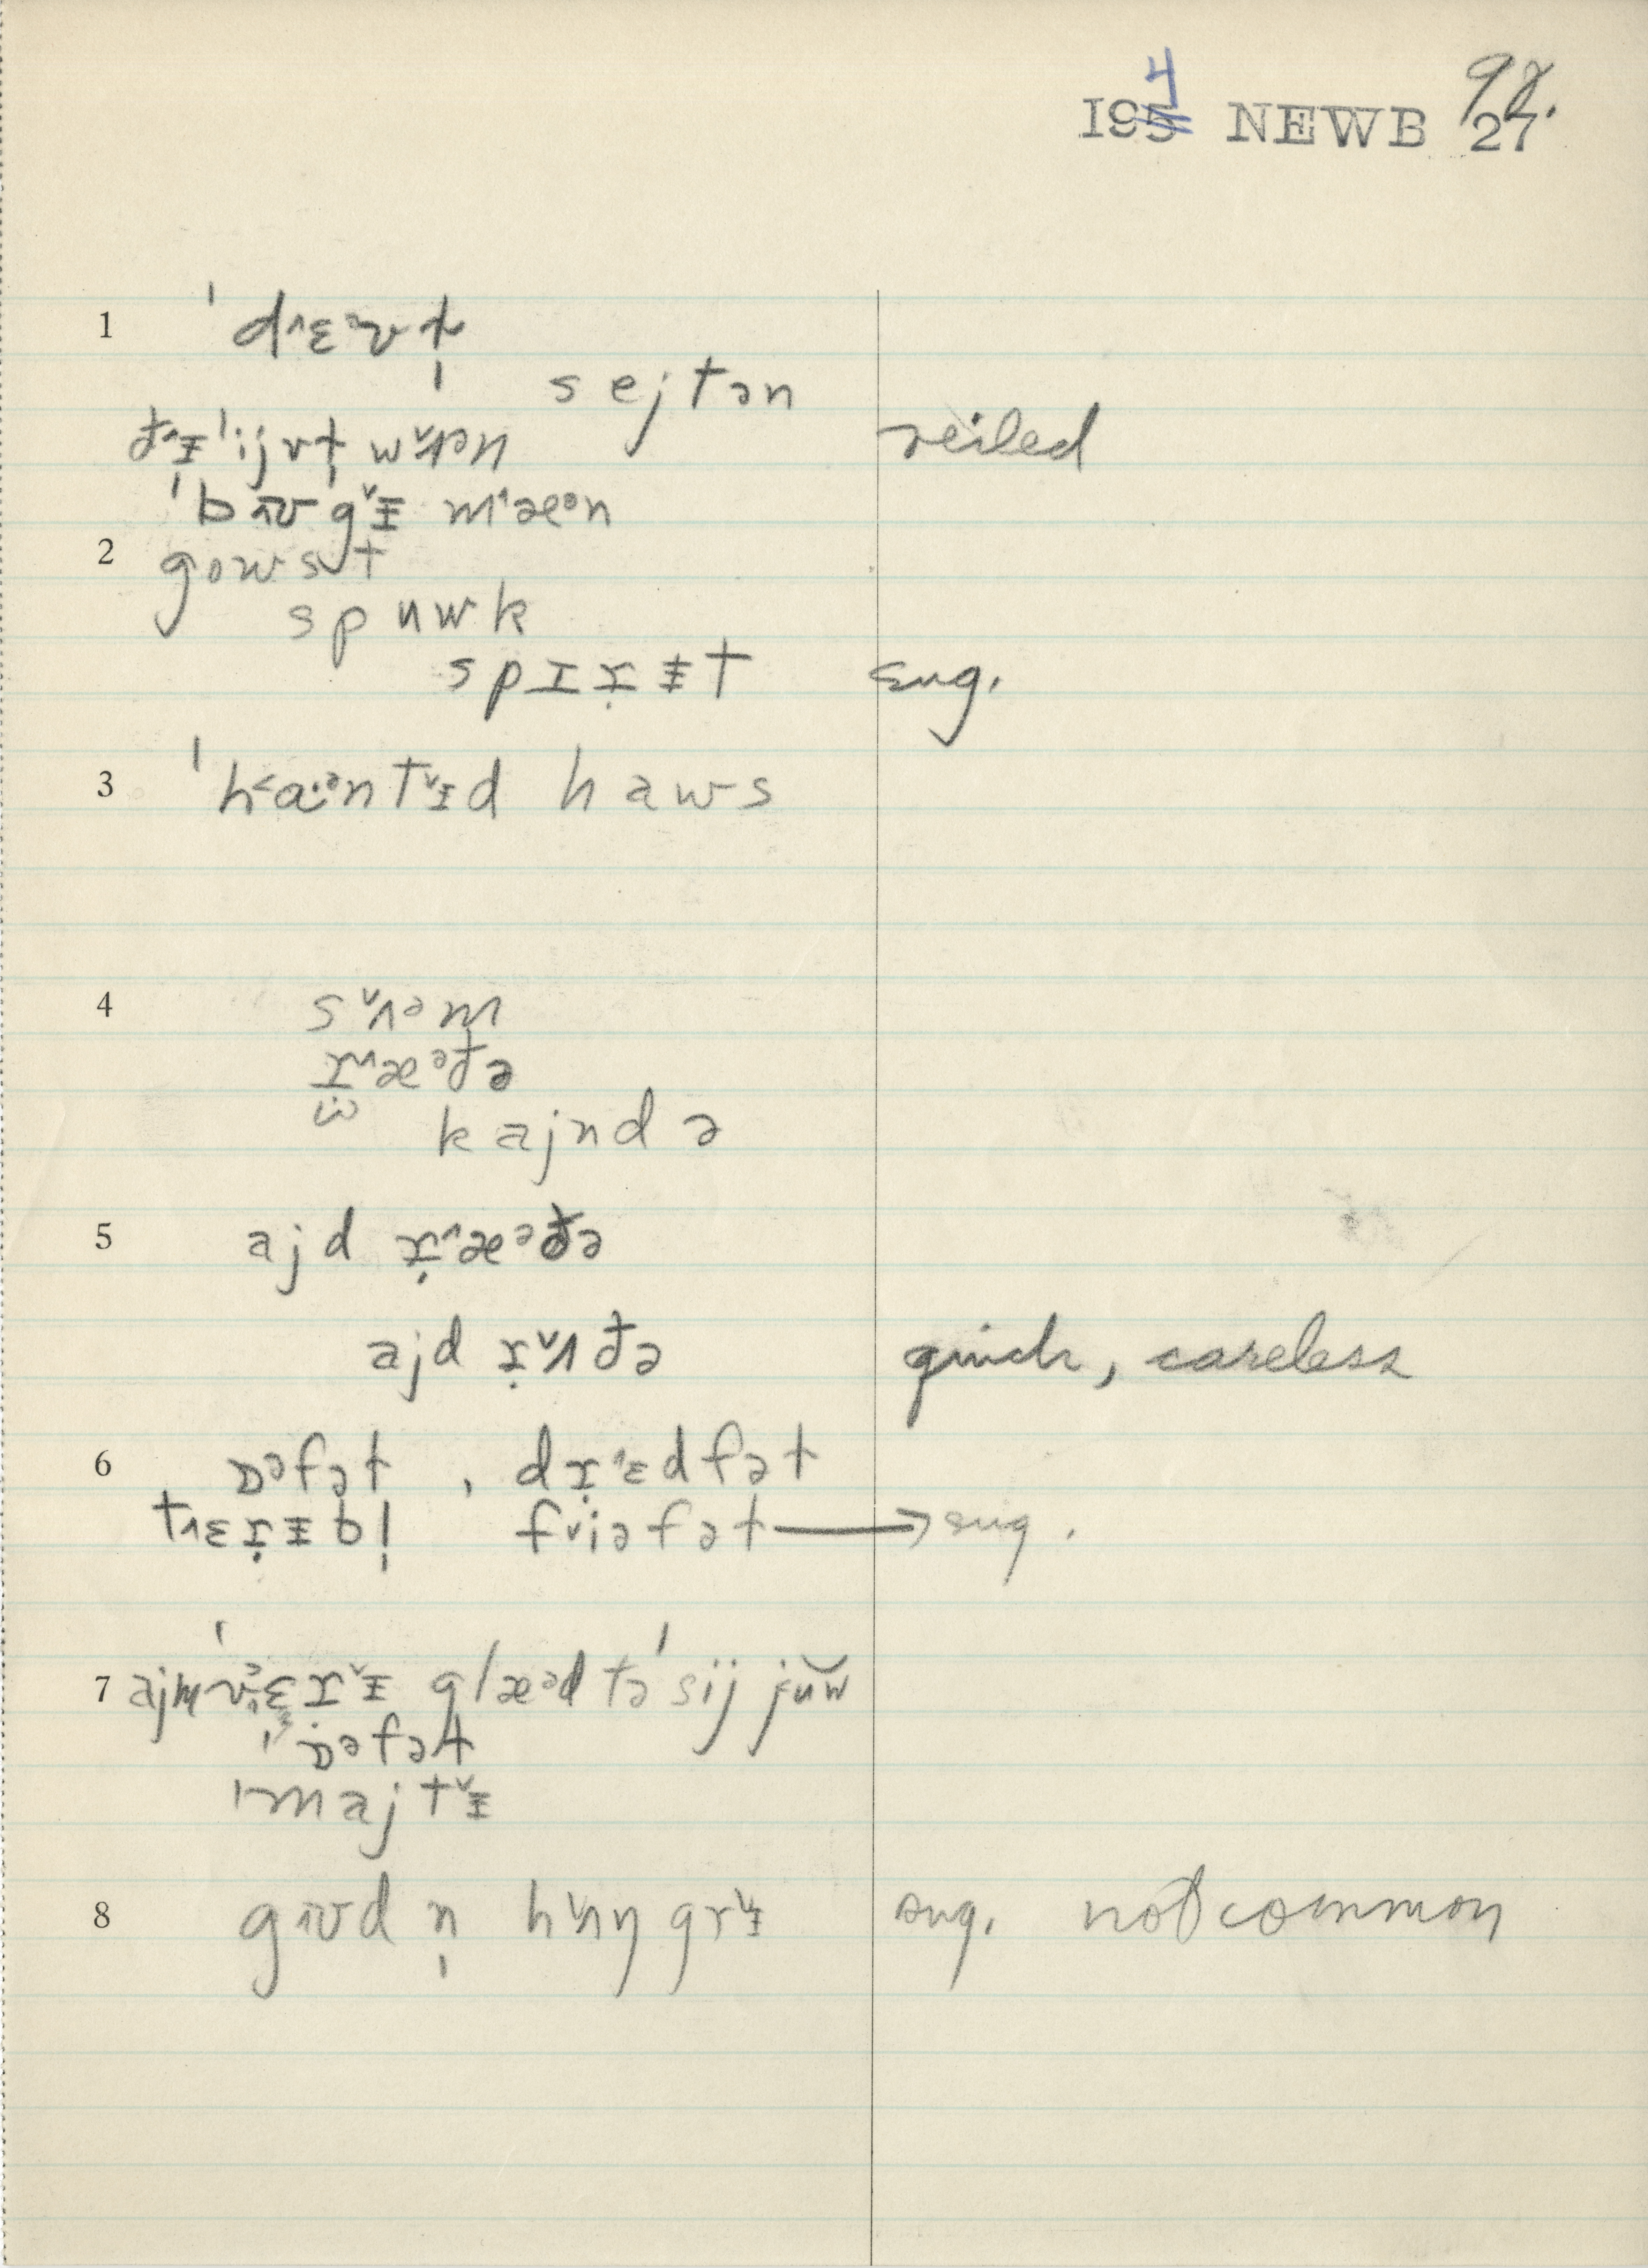 I954 NEWB 27 98.
1 ˈd˄ɛᵊvɫ̩
sejtən
ð˄ᵻˈijvɫ̩ w˅ʌᵊn
veiled
ˈbᴜg˅ᵻ m˄æᵊn
2 gowst
spuwk
spɪṛᵻt sug.
3 ˈh˂ɑ·ᵊnt˅ᵻd haws
4 s˅ʌᵊm
r˄æᵊðə
kajndə
5 ajd ṛ˄æᵊðə
ajd ṛ˅ʌðə quick, careless
6 ɒᵊfəɫ , dṛ˄ɛdfəɫ
t˄ɛṛᵻbl̩ f˅iəfəɫ → sug.
7 ajm v˄ɛr˅ᵻ glæᵊd təˈsij juw
ˈɒᵊfəɫ
ˈmajt˅ᵻ
8 gᴜd n̩ h˅ʌŋgr˅ᵻ sug. not common